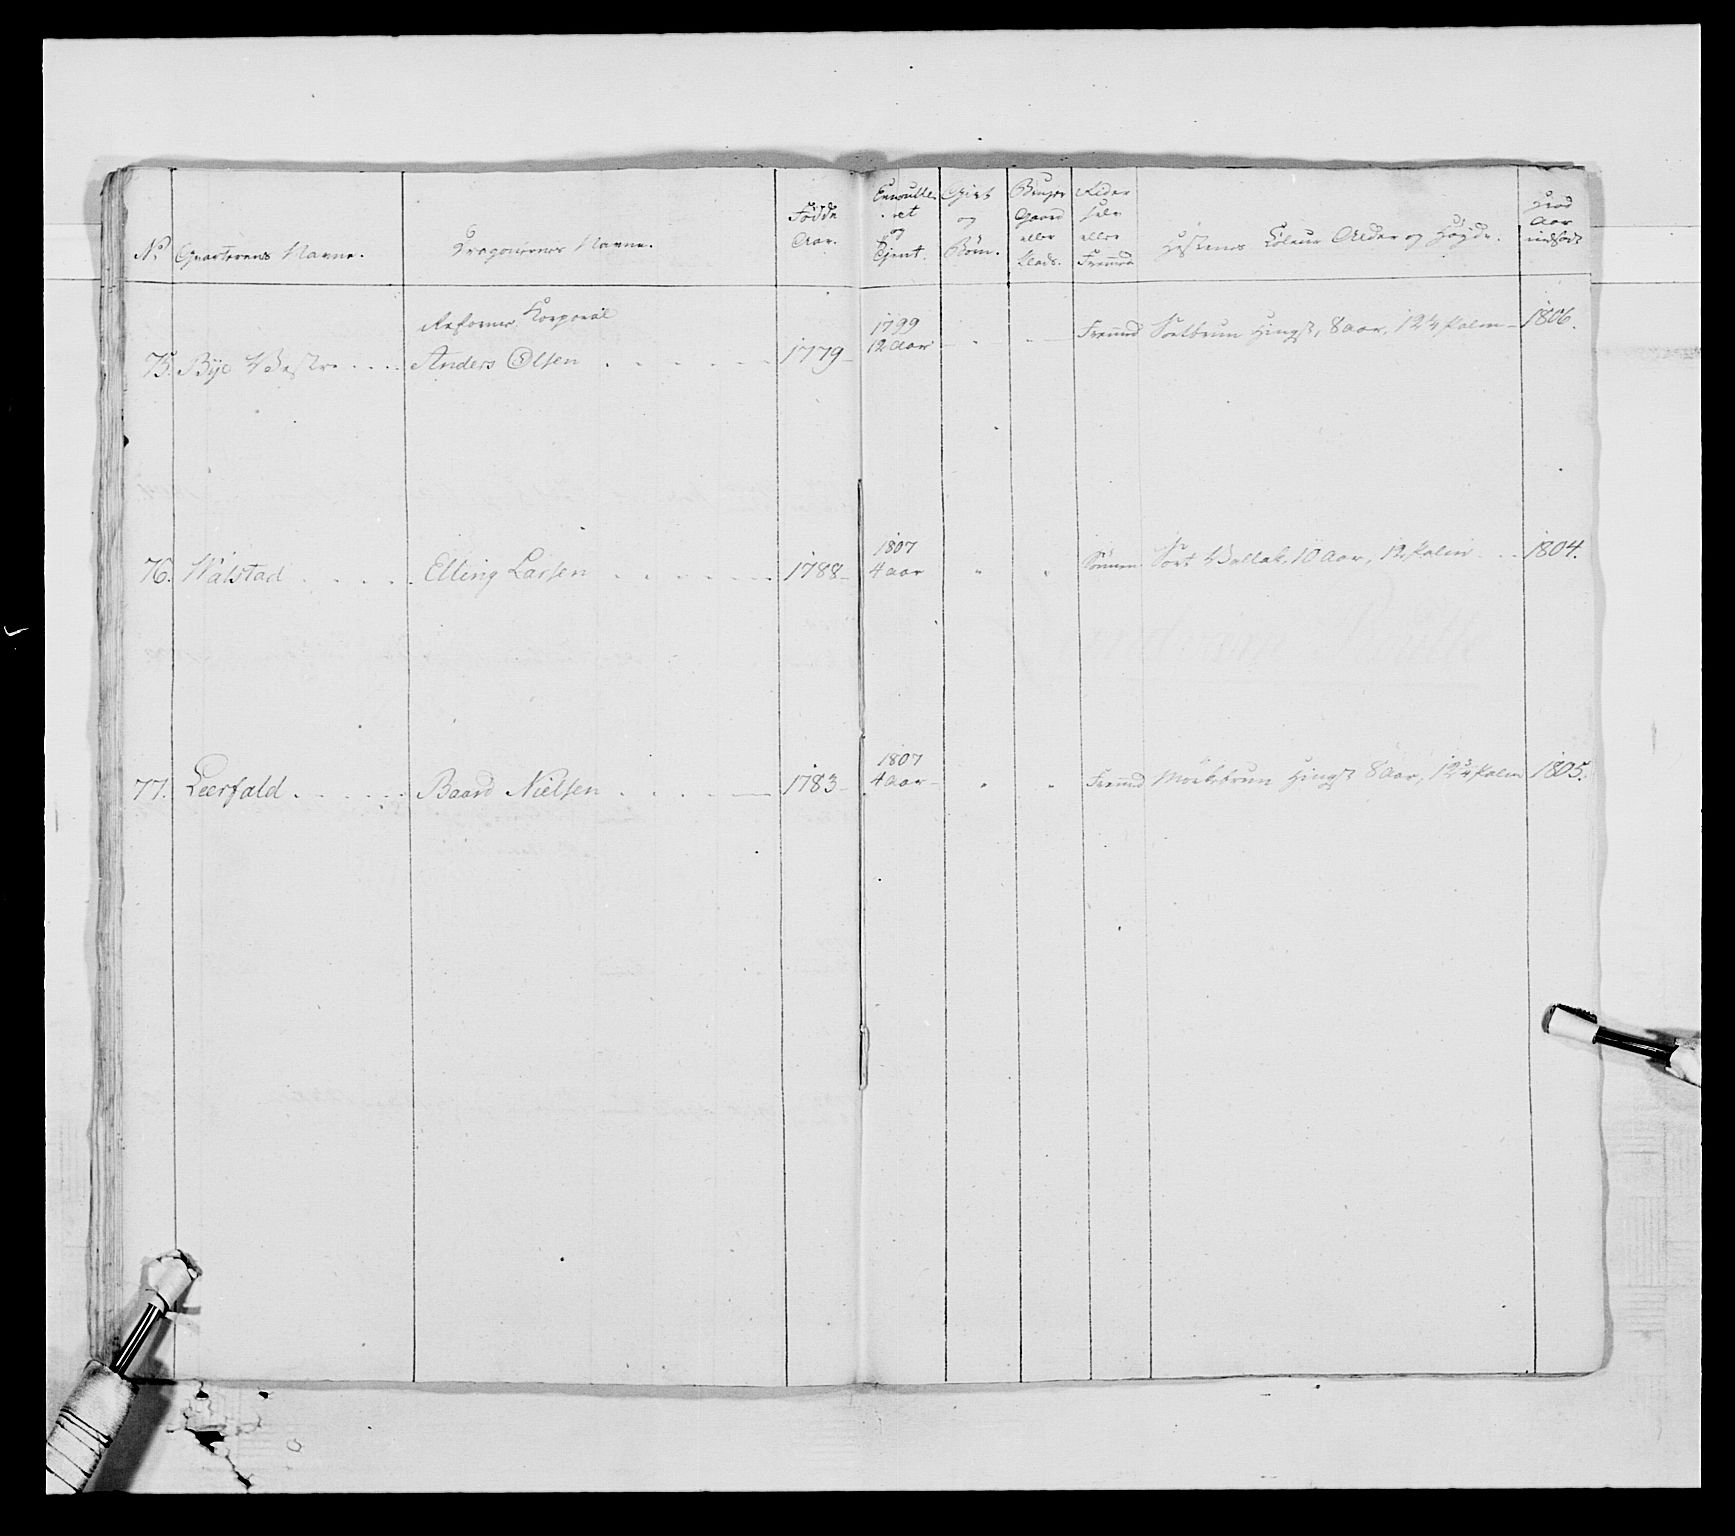 No Qvarterens Navne. Dragounernes Navne. Fødde Aar. Enroulleret og Tjent. Givt og Børn. Bruger Gaard eller Plads. Rider selv eller Fremmed Hestenes Coleur Alder og Høyde. Hvad Aar indsadt
Reformr. Korporal
75. Bye Vestre Anders Olsen 1779 1799 12 Aar Fremmd Sortbrun Hingst, 8 Aar, 12 1/4 Palm 1806.
76. Walstad Elling Larsen 1788 1807 4 aar " " Sönnen Sort Vallak, 10 Aar, 12 Palm 1804.
77. Leerfald Baard Nielsen 1783 1807 4 Aar " " Fremmd Mörkbrun Hingst 8 Aar, 12 3/4 Palm 1805.